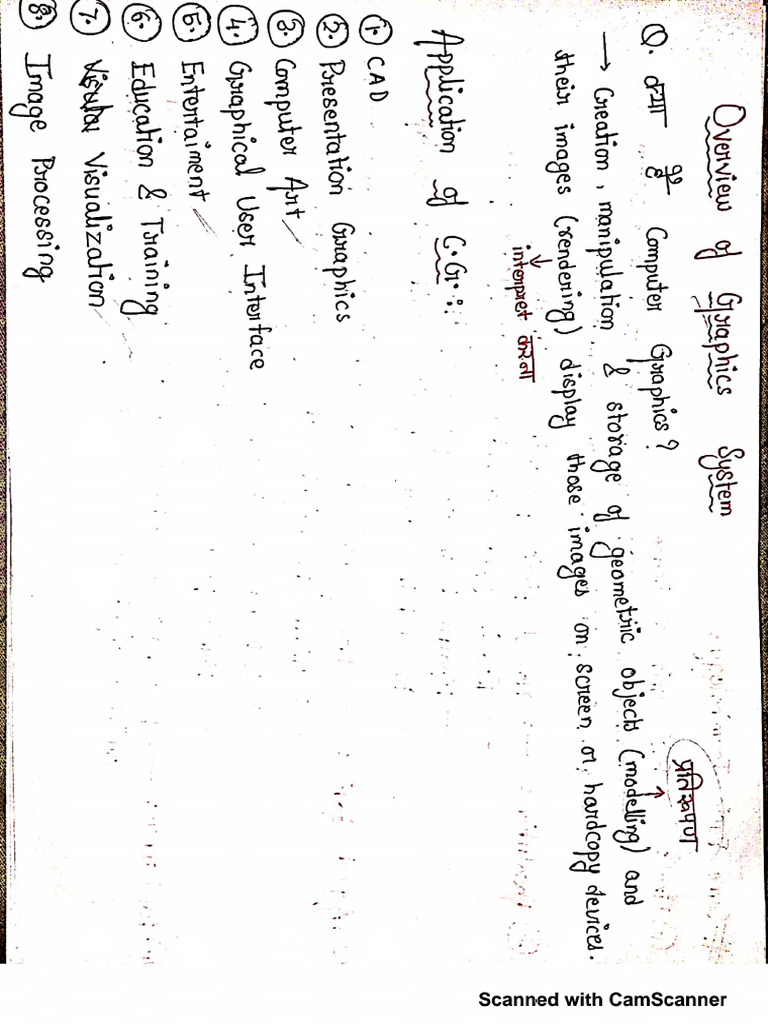 Overview of Graphics System
Q. क्या है Computer Graphics?
प्रतिरूपण
→ Creation, manipulation & storage of geometric objects (modelling) and
their images (rendering) display those images on screen or hardcopy devices.
interpret करना
Application of C.G. :
1. CAD
2. Presentation Graphics
3. Computer Art
4. Graphical User Interface
5. Entertaiment
6. Education & Training
7. Visualization
8. Image Processing
Scanned with CamScanner